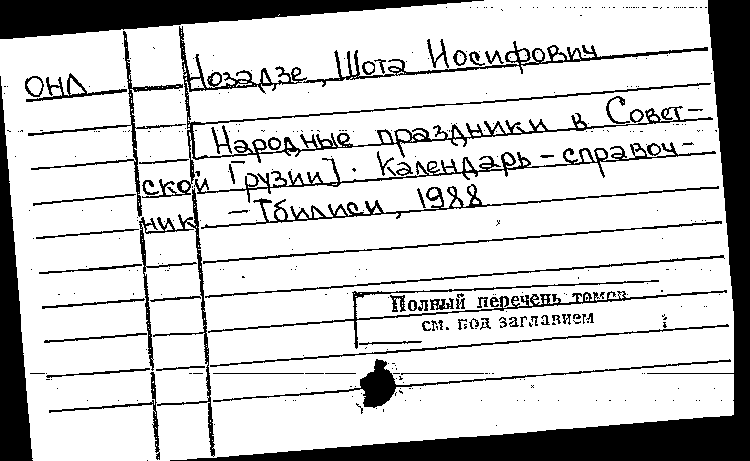 ОНЛ Нозадзе, Шота Иосифович
[Народные праздники в Совет-
ской Грузии]: Календарь-справоч-
ник. – Тбилиси, 1988
Полный перечень томов
см. под заглавием